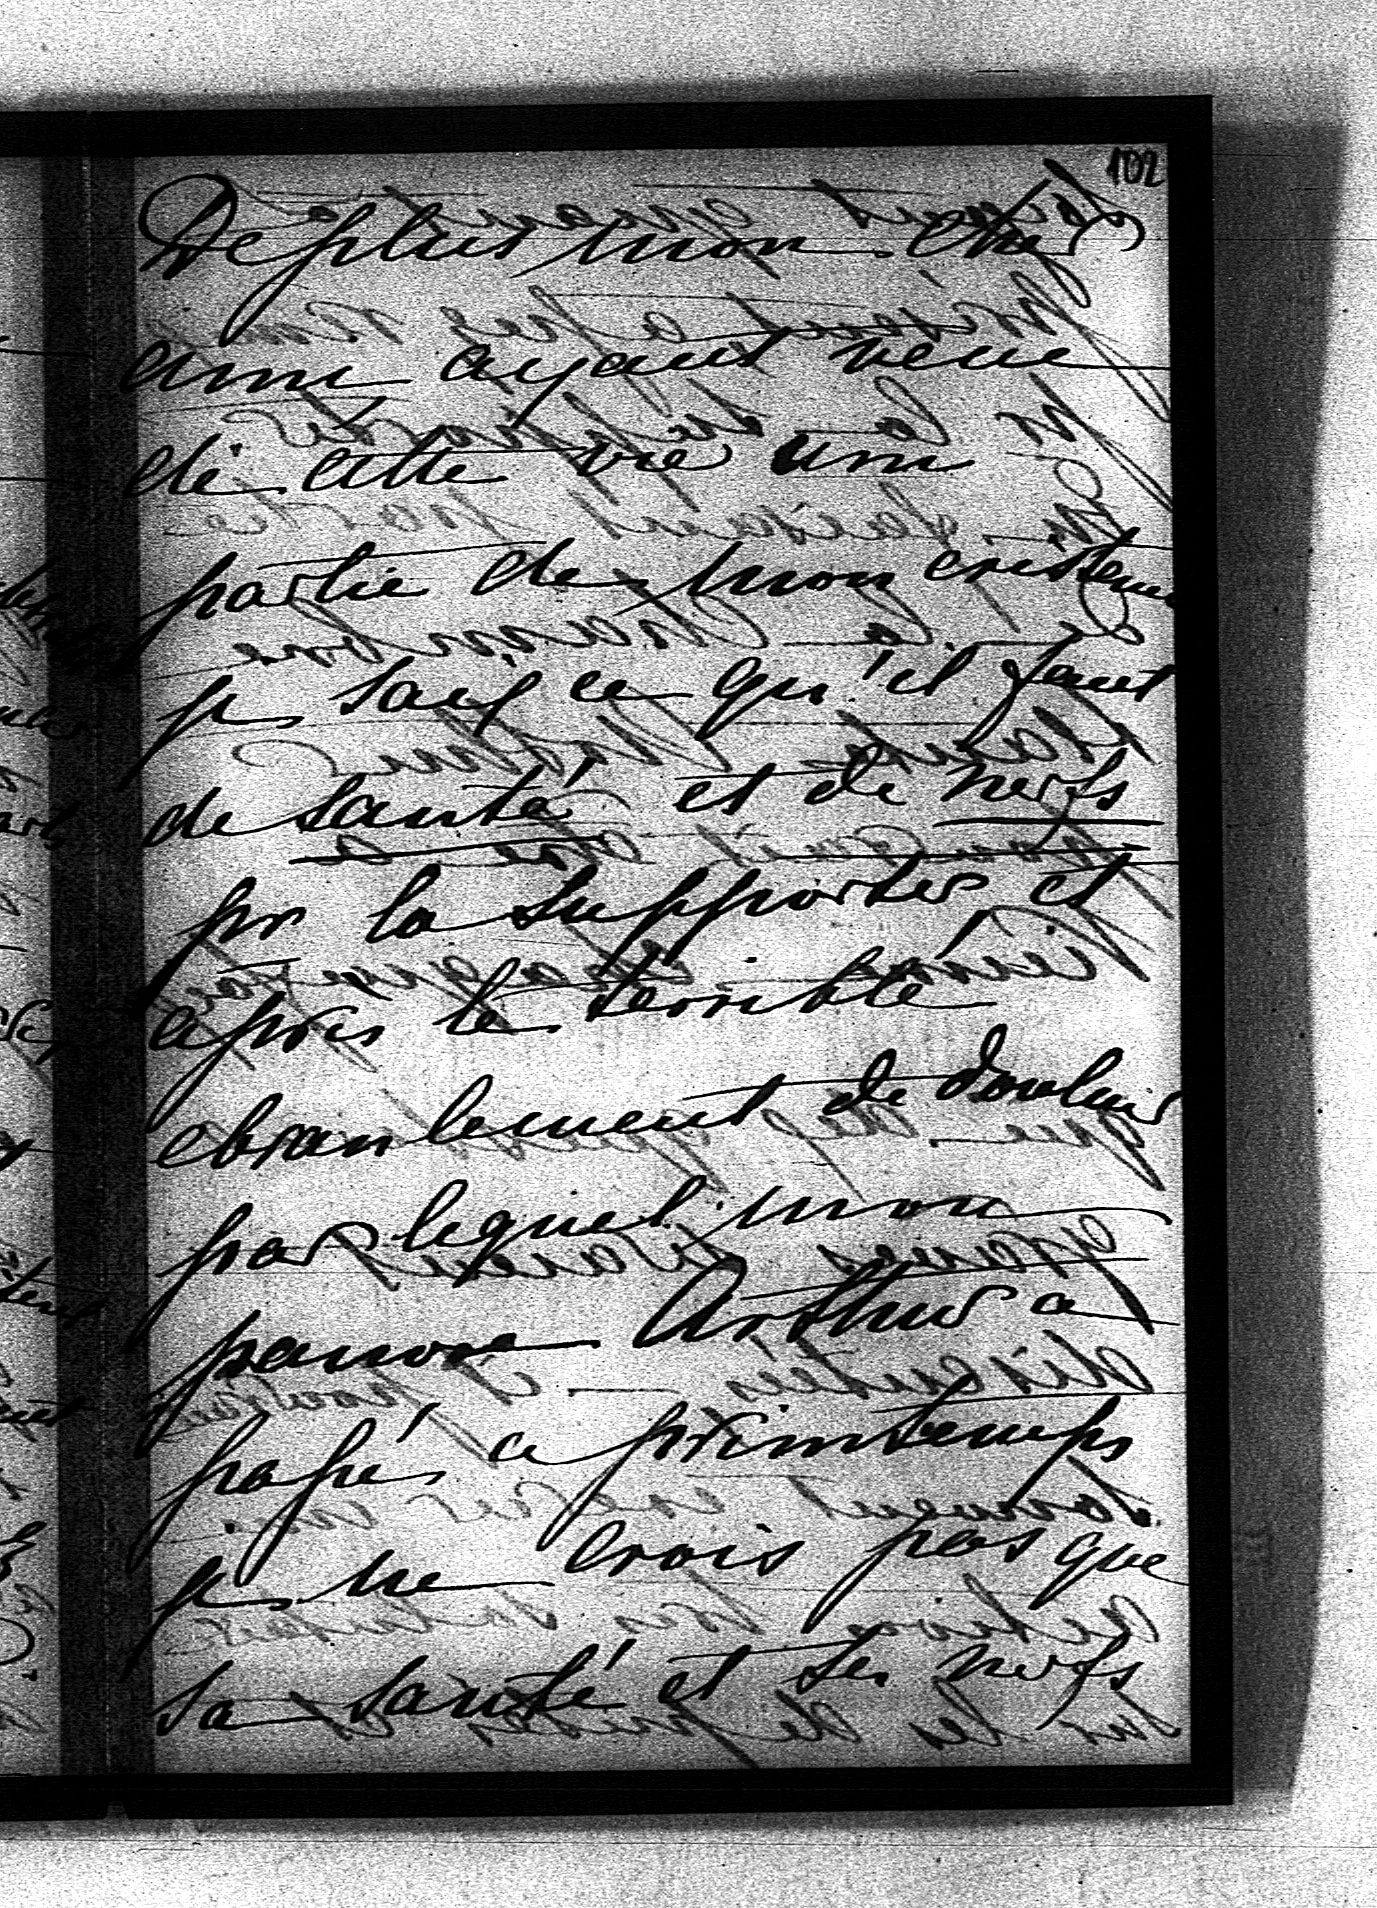 102
De plus mon cher
ami ayant vécue
de cette vie une
partie de mon existence
je sais ce qu'il faut
de santé et de nerfs
pr la supporter et
après le terrible
ebranlement de douleur
par lequel mon
pauvre Arthur a
passé ce printemps
je ne crois pas que
sa santé et ses nerfs